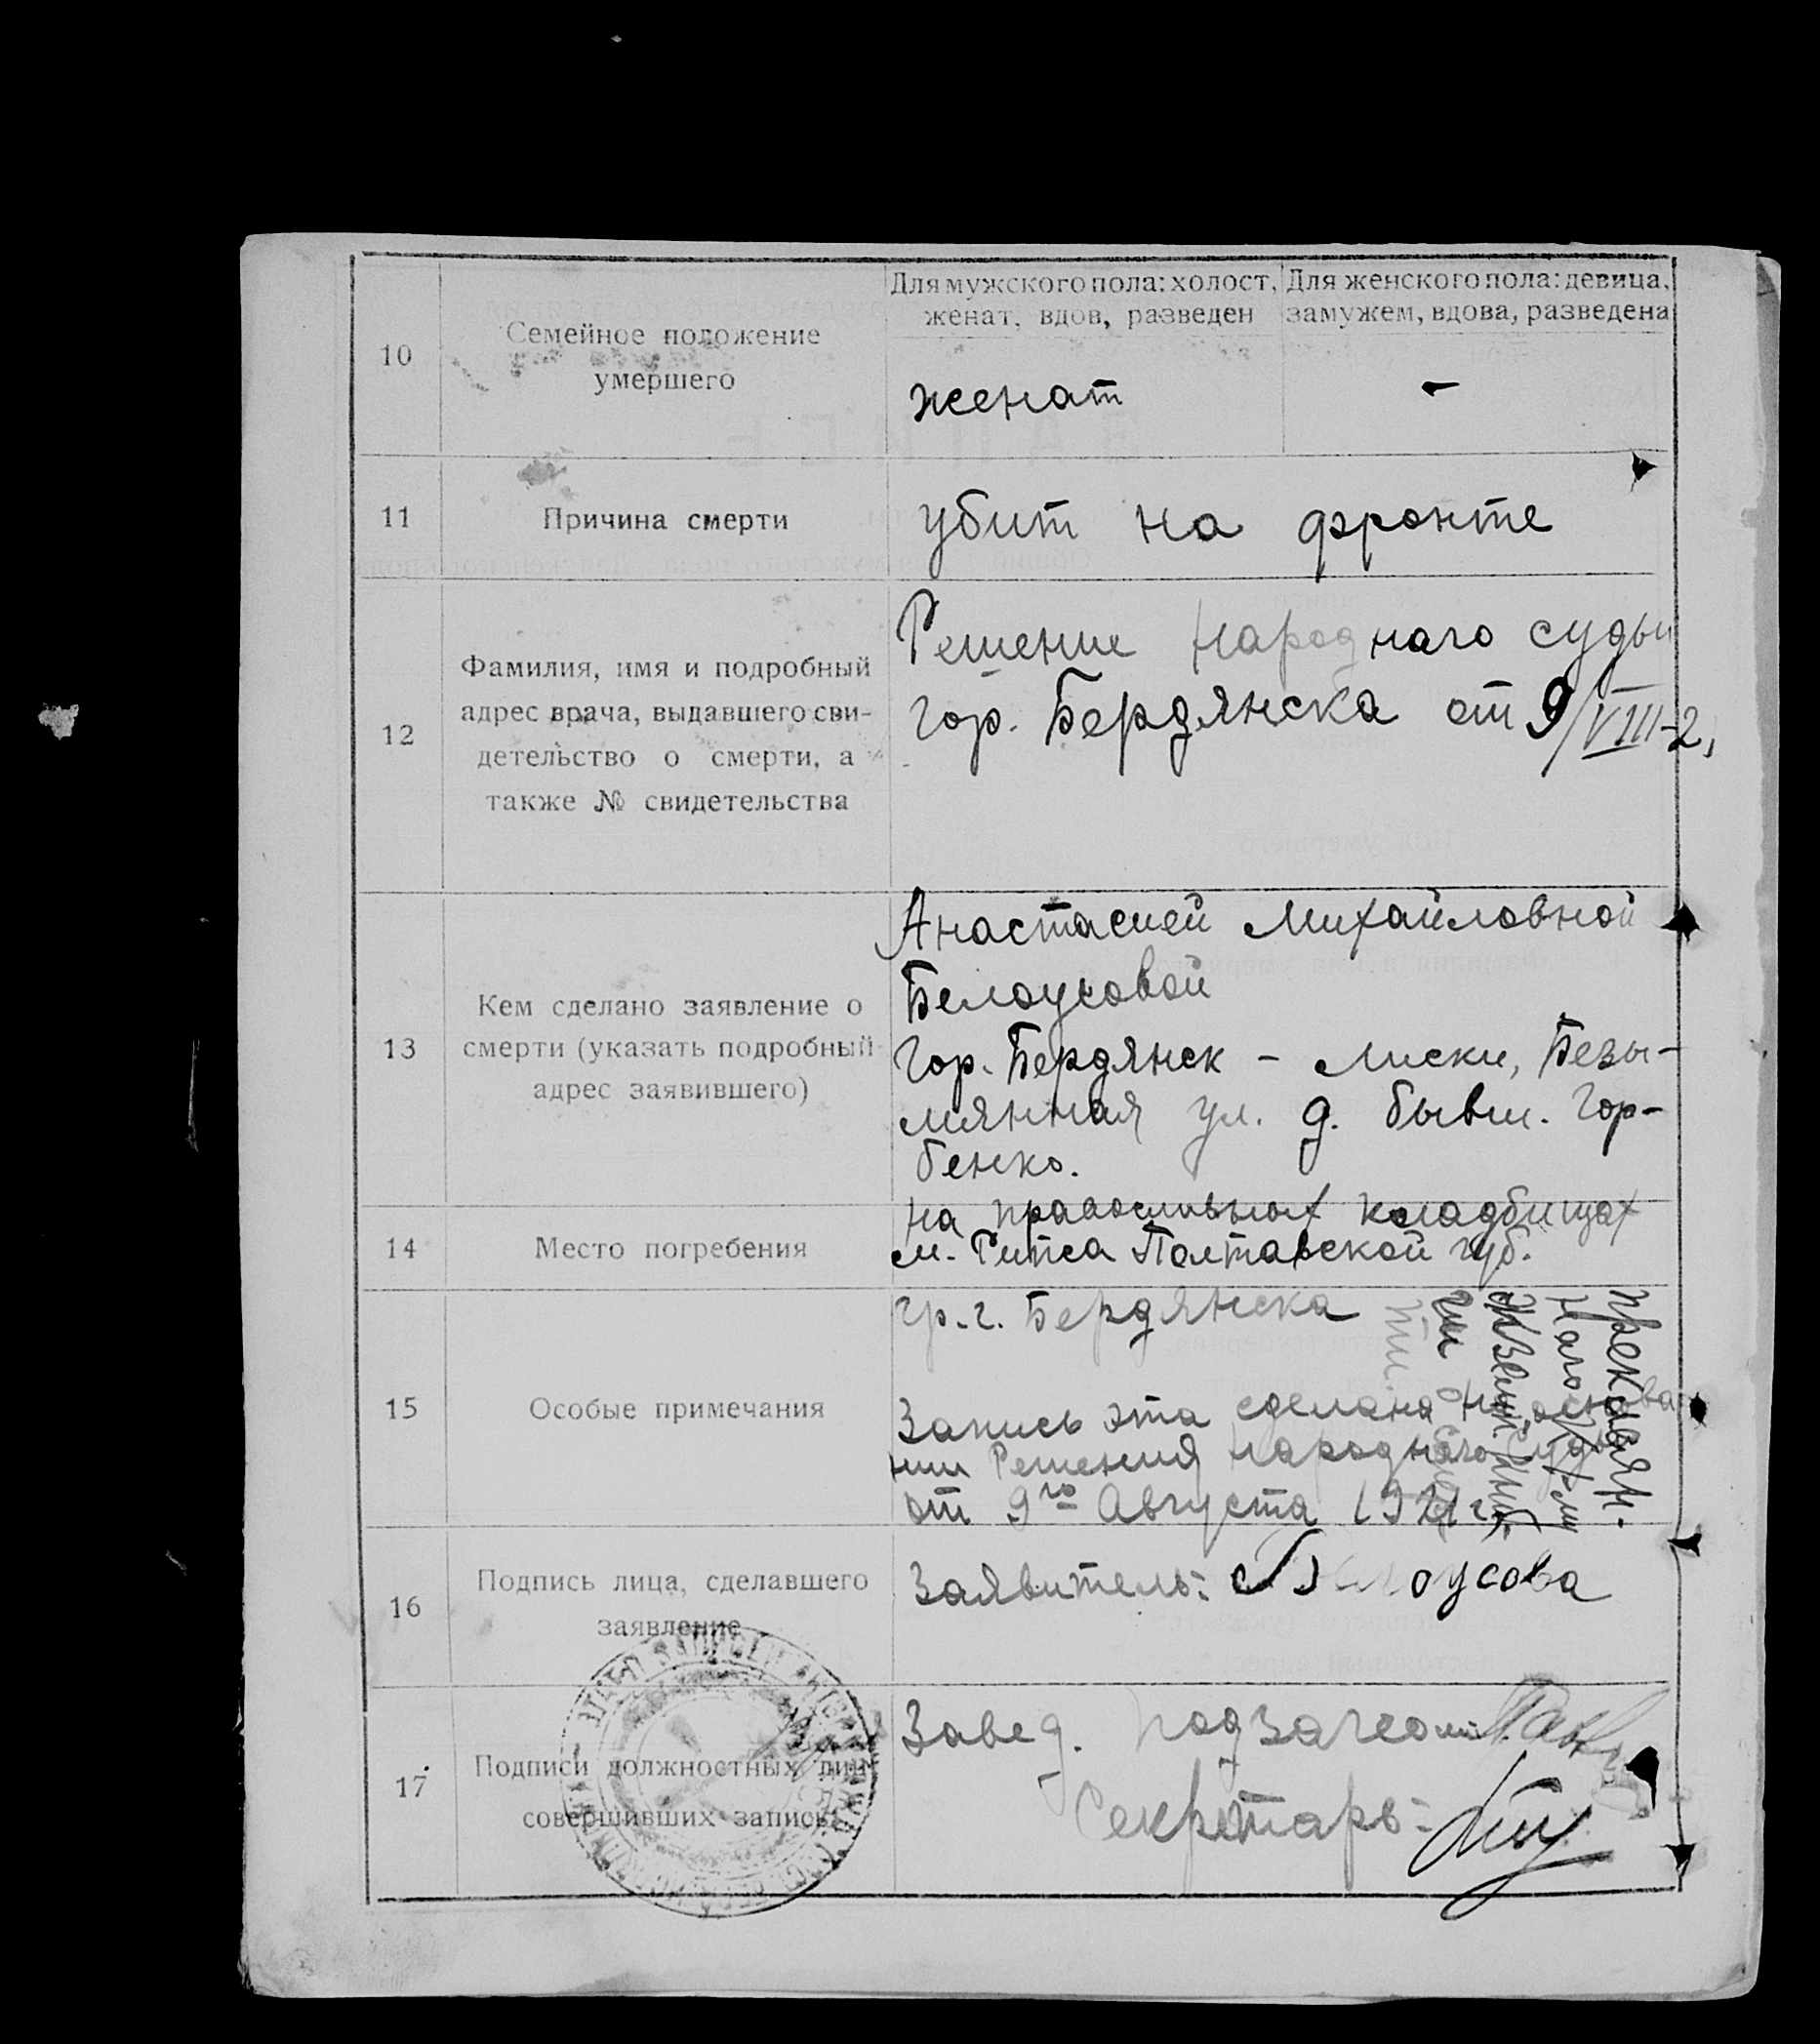 10
Семейное положение
умершего
Для мужского пола: холост,
женат, вдов, разведен
Для женского пола: девица,
замужем, вдова, разведена
женат
-
11
Причина смерти
убит на фронте
12
Фамилия, имя и подробный
адрес врача, выдавшего сви-
детельство о смерти, а
также № свидетельства
Решение народнаго судьи
гор. Бердянска от 9/VIII-2
13
Кем сделано заявление о
смерти (указать подробный
адрес заявившего)
Анастасией Михайловной
Белоусовой
гор. Бердянск - Лиски, Безы-
мянная ул. д. бывш. Гор-
бенко.
14
Место погребения
на православных кладбищах
м. Гипса Полтавской губ.
15
Особые примечания
гр. г. Бердянска
Запись эта сделана на основа
нии Решения народнаго Судьи
от 9го Августа 1921 г.
16
Подпись лица, сделавшего
заявление
Заявитель: Белоусова
17
Подписи должностных лиц
совершивших запись
Завед. подзагсом
Секретарь: